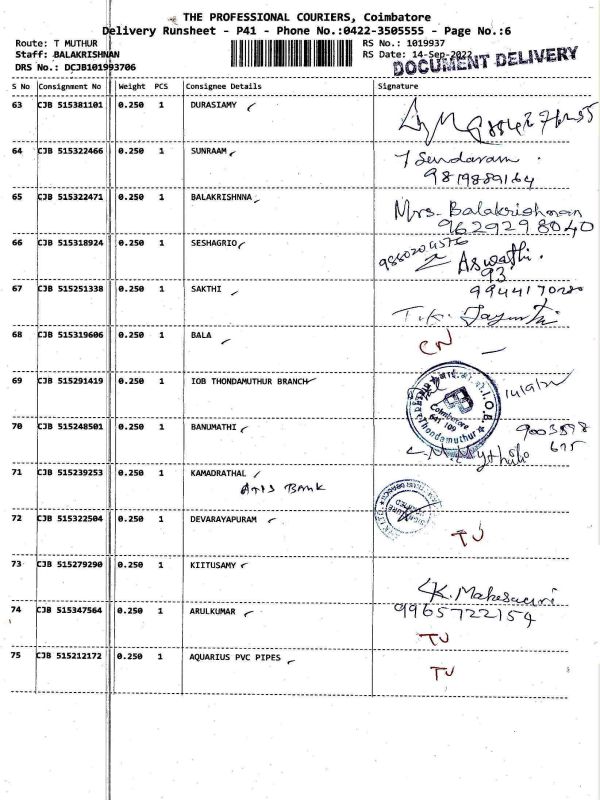 THE PROFESSIONAL COURIERS, Coimbatore
Delivery Runsheet - P41 - Phone No.:0422-3505555 - Page No.:6
Route: T MUTHUR
RS No.: 1019937
Staff: BALAKRISHNAN
RS Date: 14-Sep-2022
DRS No.: DCJB101993706
DOCUMENT DELIVERY
S No Consignment No Weight PCS Consignee Details Signature
63 CJB 515381101 0.250 1 DURASIAMY
64 CJB 515322466 0.250 1 SUNRAAM
T Sundaram.
9819889164
65 CJB 515322471 0.250 1 BALAKRISHNNA
Mrs. Balakrishnan
9629298040
66 CJB 515318924 0.250 1 SESHAGRIO
Aswathi.
93
67 CJB 515251338 0.250 1 SAKTHI
T.K.
68 CJB 515319606 0.250 1 BALA
CN
69 CJB 515291419 0.250 1 IOB THONDAMUTHUR BRANCH
I.O.B
Coimbatore
641 109
Thondamuthur
14/9/22
70 CJB 515248501 0.250 1 BANUMATHI
9003898
675
71 CJB 515239253 0.250 1 KAMADRATHAL
AXIS BANK
72 CJB 515322504 0.250 1 DEVARAYAPURAM
TU
73 CJB 515279290 0.250 1 KIITUSAMY
K. Maheswari
74 CJB 515347564 0.250 1 ARULKUMAR
9965722154
TU
75 CJB 515212172 0.250 1 AQUARIUS PVC PIPES
TU